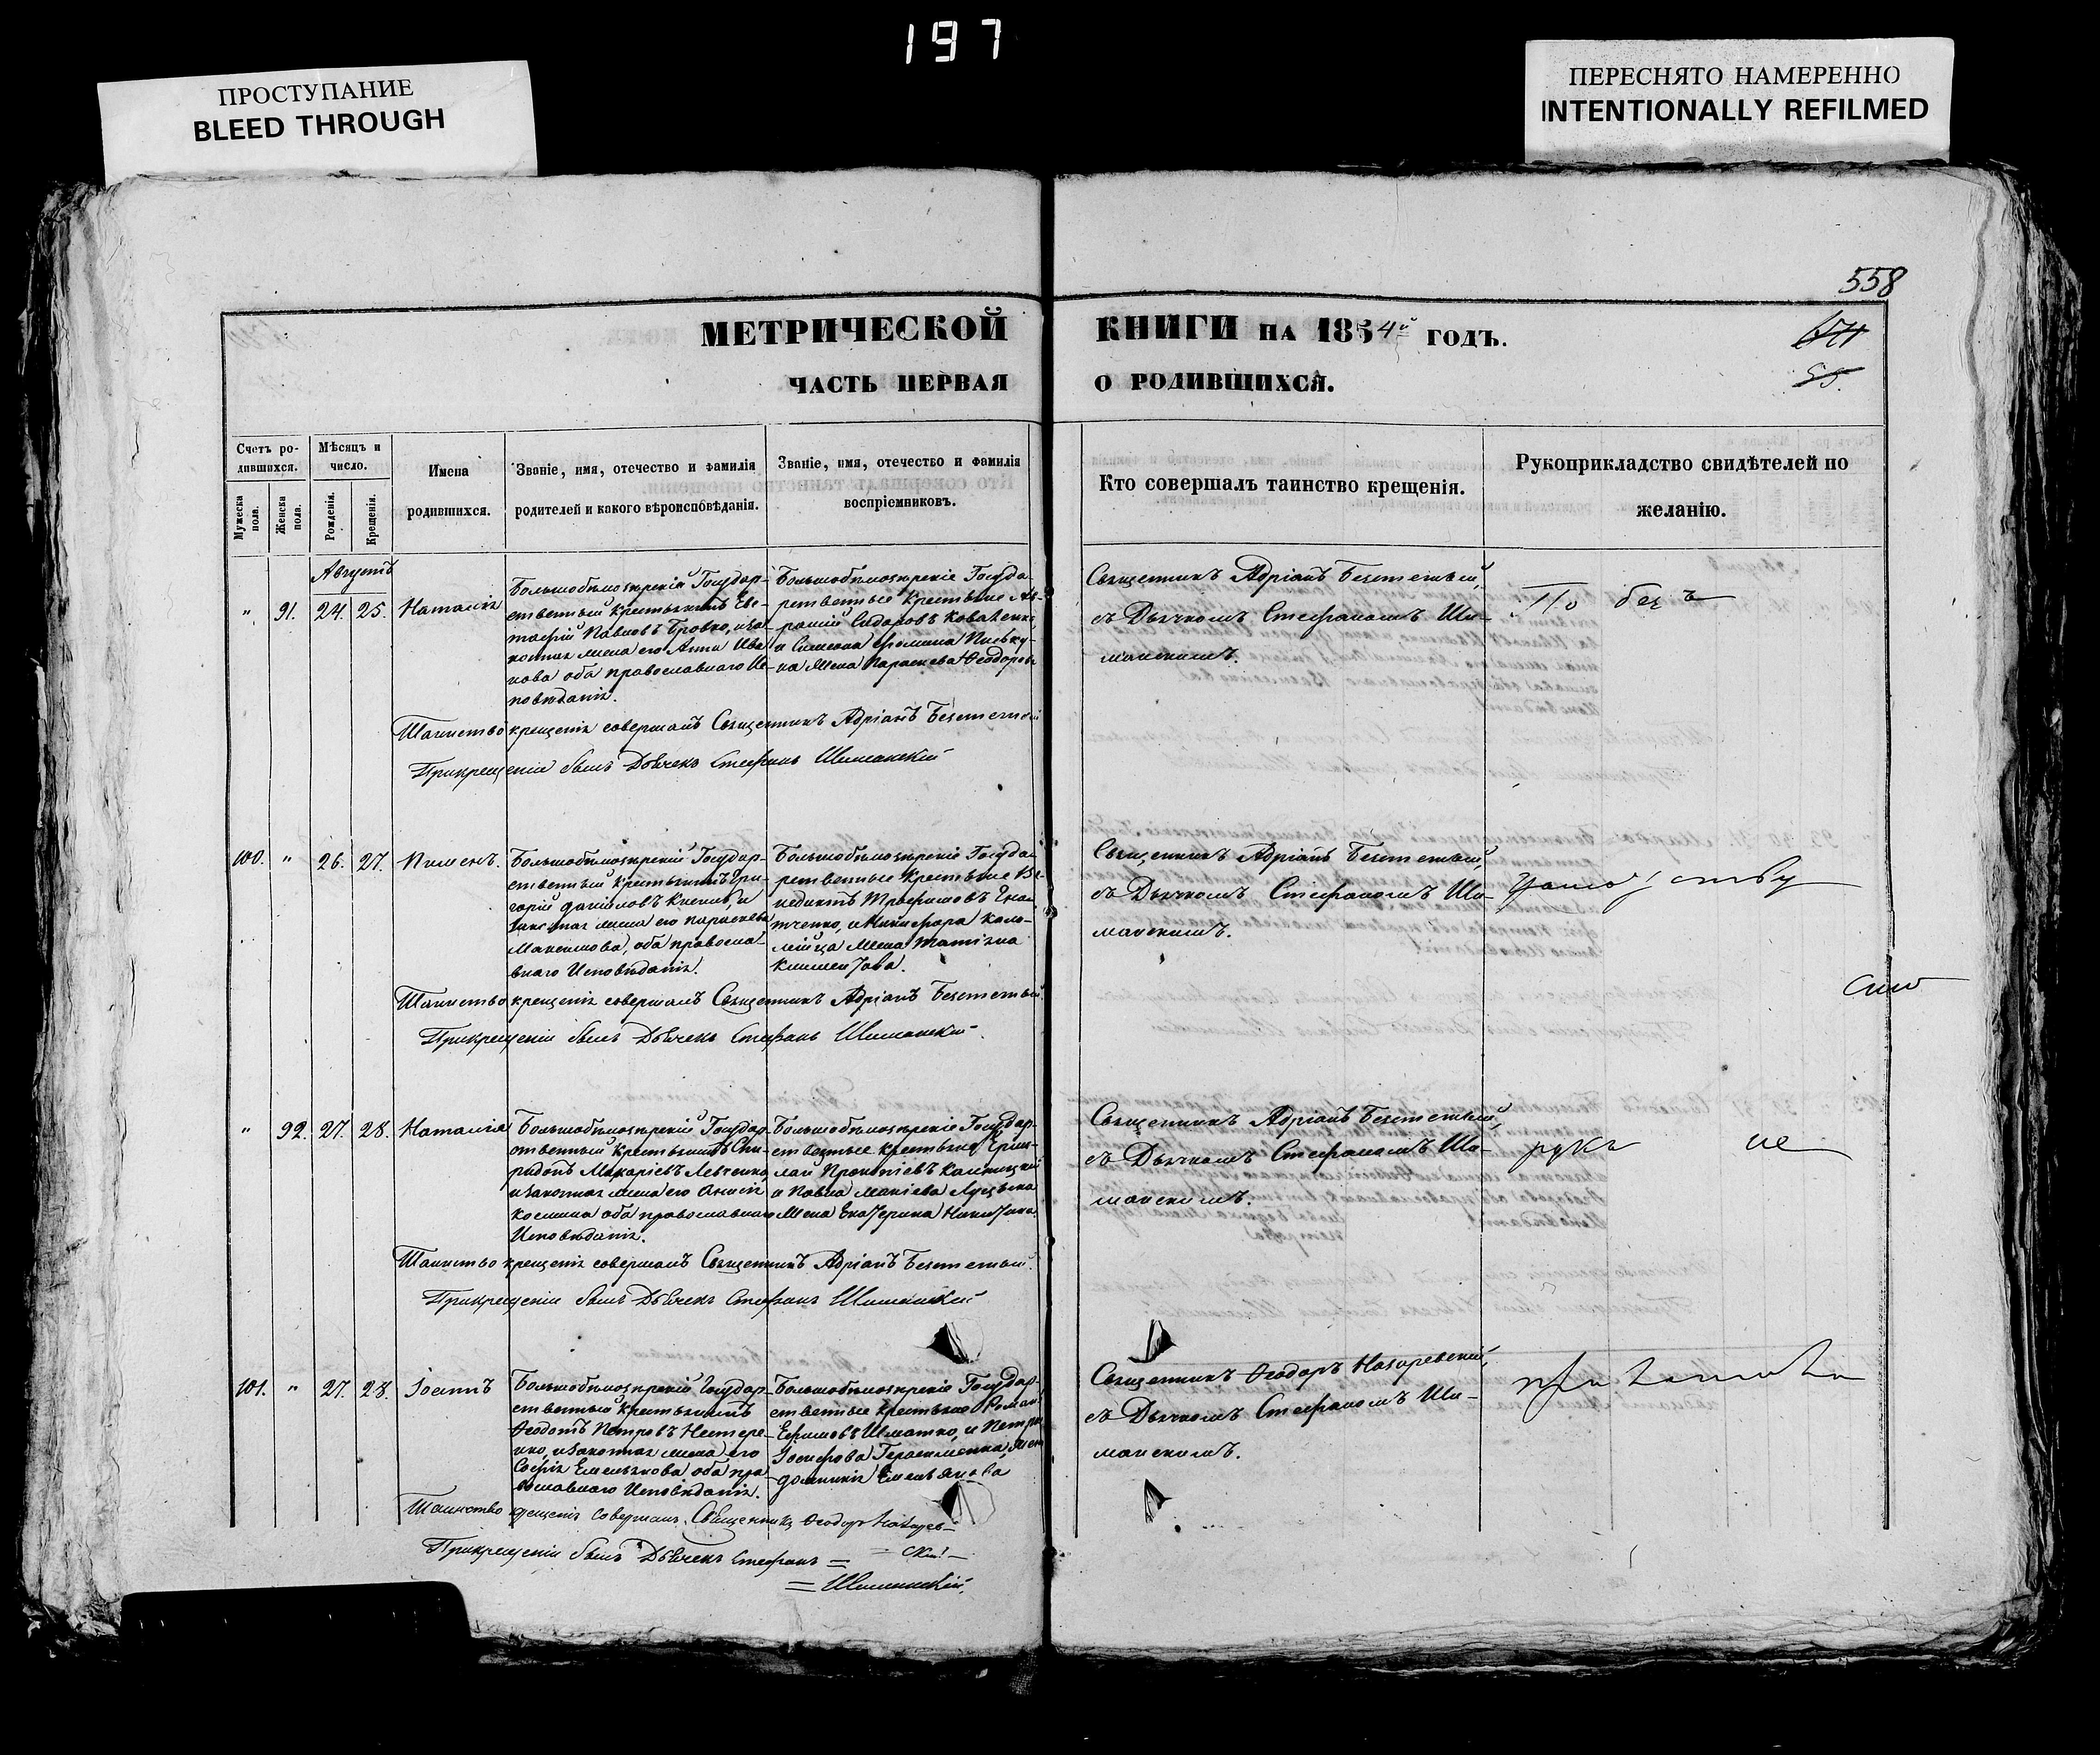 197
ПРОСТУПАНИЕ
BLEED THROUGH
ПЕРЕСНЯТО НАМЕРЕННО
INTENTIONALLY REFILMED
558
МЕТРИЧЕСКОЙ КНИГИ НА 1854й ГОДЪ.
ЧАСТЬ ПЕРВАЯ О РОДИВШИХСЯ.
Счетъ ро-
дившихся.
Мужеска пола.
Женска пола.
Мѣсяцъ и
число.
Рожденія.
Крещенія.
Имена
родившихся.
Званіе, имя, отечество и фамилія
родителей и какого вѣроисповѣданія.
Званіе, имя, отечество и фамилія
воспріемниковъ.
Кто совершалъ таинство крещенія.
Рукоприкладство свидѣтелей по
желанію.
Августъ
" 91. 24. 25. Наталія
Большобѣлозѣрскій Государ-
ственный крестьянинъ Евс-
тафій Павловъ Бровко, и за-
конная жена его Анна Ива-
нова оба православнаго Ис-
повѣданія.
Большобѣлозѣрскіе Госуда-
рственные крестьяне
Сидоровъ Коваленко,
и Симеона
на жена Параскева Ѳеодорова
Священникъ Адріанъ Безстетный,
съ Дьячкомъ Стефаномъ Ши-
манскимъ.
По безъ
Таинство крещенія совершалъ Священникъ Адріанъ Безстетный
При крещеніи былъ Дьячекъ Стефанъ Шиманскій
100. " 26. 27. Пименъ.
Большобѣлозѣрскій Государ-
ственный крестьянинъ Гри-
горій Даніиловъ и
законная жена его Параскева
Максимова, оба правосла-
внаго Исповѣданія.
Большобѣлозѣрскіе Госуда-
рственные крестьяне Ве-
недиктъ Трофимовъ Игна-
тченко, и Никифора Коло-
мійца жена Татіана
Климентова.
Священникъ Адріанъ Безстетный,
съ Дьячкомъ Стефаномъ Ши-
манскимъ.
Таинство крещенія совершалъ Священникъ Адріанъ Безстетный
При крещеніи былъ Дьячекъ Стефанъ Шиманскій.
" 92. 27. 28. Наталія
Большобѣлозѣрскій Государ-
ственный крестьянинъ Спи-
ридонъ Макаріевъ Левченко,
и законная жена его Анисія
Космина оба православнаго
Исповѣданія.
Большобѣлозѣрскіе Государ-
ственные крестьяне Ермо-
лай Прокопіевъ
и Павла
жена Екатерина Никитина.
Священникъ Адріанъ Безстетный,
съ Дьячкомъ Стефаномъ Ши-
манскимъ.
рукъ не
Таинство крещенія совершалъ Священникъ Адріанъ Безстетный.
При крещеніи былъ Дьячекъ Стефанъ Шиманскій
101. " 27. 28. Іоаннъ
Большобѣлозѣрскій Государ-
ственный крестьянинъ
Ѳеодотъ Петровъ Нестере-
нко, и законная жена его
Софія Емельянова оба пра-
вославнаго Исповѣданія.
Большобѣлозѣрскіе Государ-
ственные крестьяне Роман
Ефимовъ Шматко, и Петра
Іосифова Герасименка, жена
Домникія Емельянова
Священникъ Ѳеодоръ Назаревскій,
съ Дьячкомъ Стефаномъ Ши-
манскимъ.
Таинство крещенія совершалъ Священникъ Ѳеодоръ Назарев-
скій
При крещеніи былъ Дьячекъ Стефанъ =
= Шиманскій.